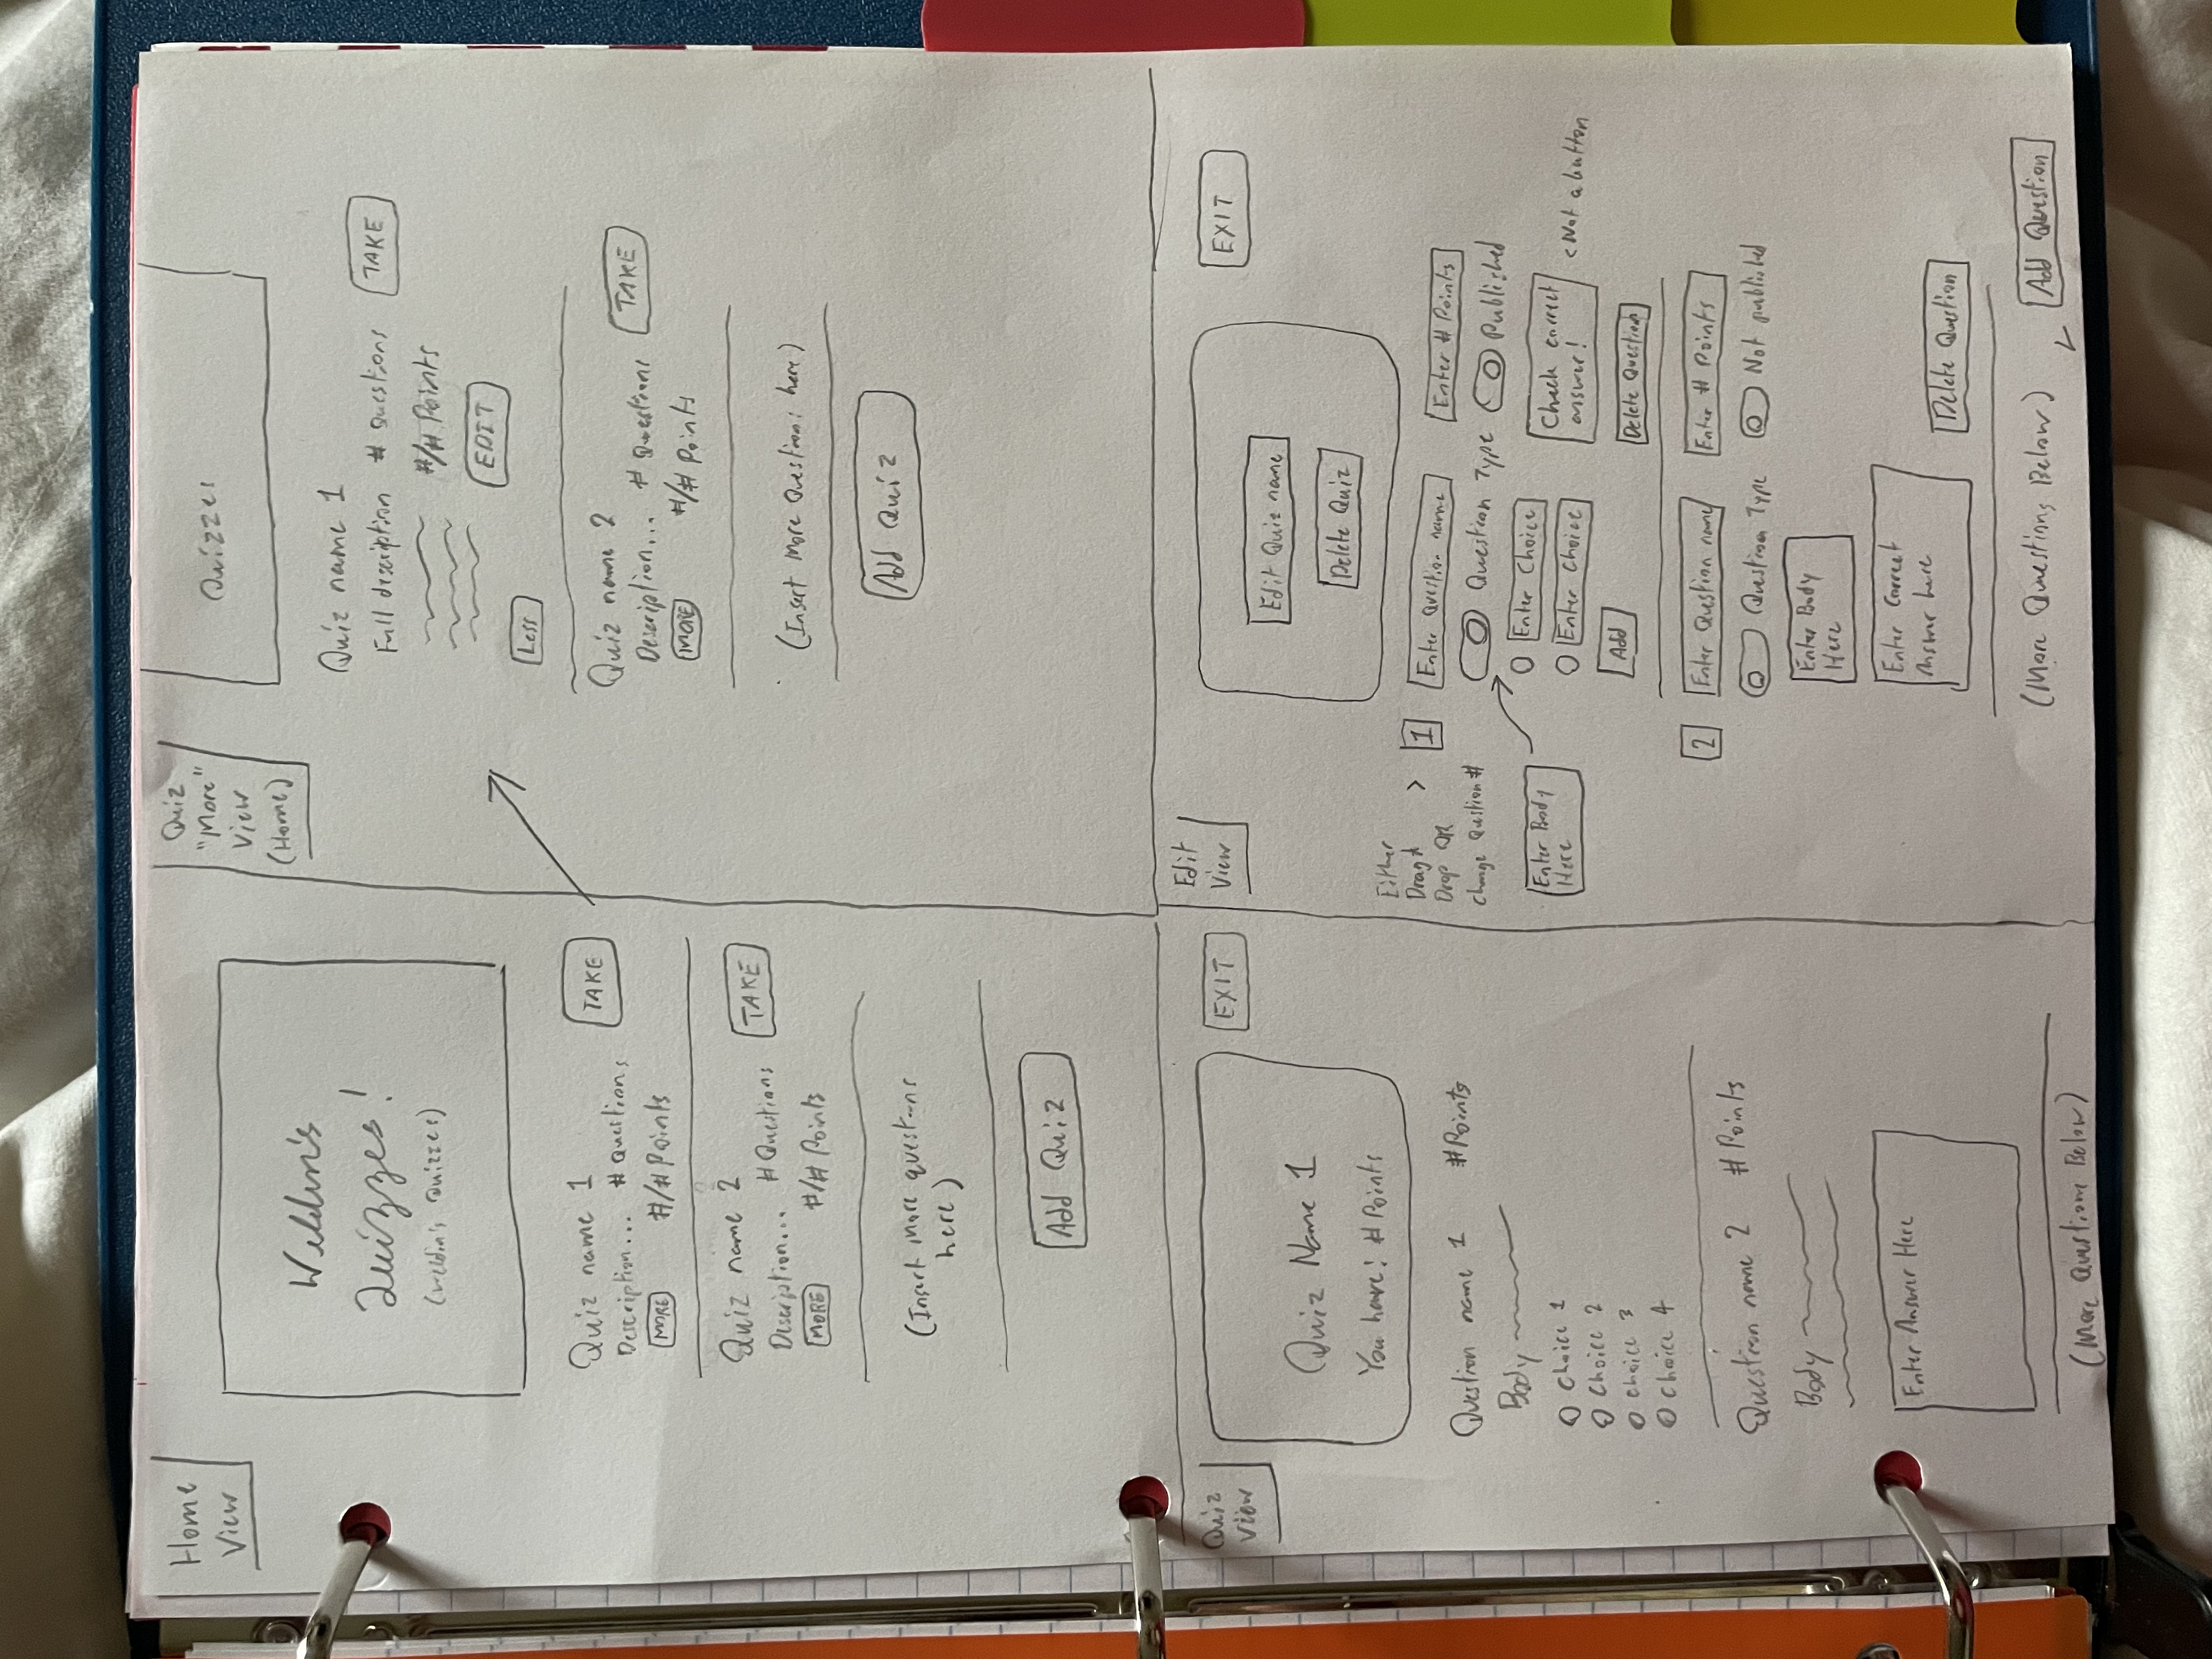 Home
View
Weldin's
Quizzes!
(Weldin's Quizzes)
Quiz name 1
TAKE
Description... # Questions
MORE #/# Points
Quiz name 2
TAKE
Description... # Questions
MORE #/# Points
(Insert more questions
here)
Add Quiz
Quiz
"More"
View
(Home)
Quizzes
Quiz name 1
Full description # Questions TAKE
#/# Points
EDIT
Less
Quiz name 2
TAKE
Description... # Questions
MORE #/# Points
(Insert More Questions here)
Add Quiz
Quiz
View
EXIT
Quiz Name 1
You have: # Points
Question name 1 # Points
Body
Choice 1
Choice 2
Choice 3
Choice 4
Question name 2 # Points
Body
Enter Answer Here
(More Questions Below)
Edit
View
EXIT
Edit Quiz name
Delete Quiz
Either
Drag &
Drop OR
change Question #
>
1 Enter Question name Enter # Points
Question Type Published
Enter Body
Here
Enter Choice
Enter Choice
Check correct
answer!
< Not a button
Add
Delete Question
2 Enter Question name Enter # Points
Question Type Not published
Enter Body
Here
Enter Correct
Answer here
Delete Question
(More Questions Below)
Add Question